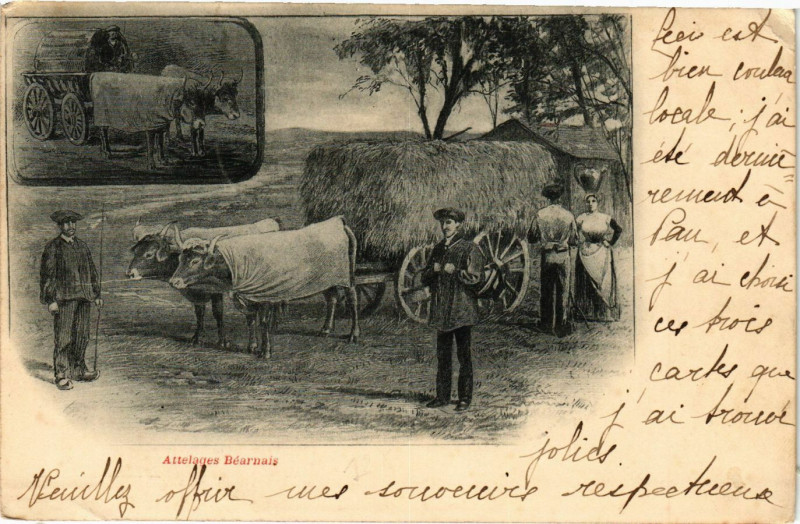 Ceci est
bien couleur
locale ; j'ai
été derniè=
rement à
Pau, et
j'ai choisi
ces trois
cartes que
j'ai trouvé
jolies
Attelages Béarnais
Veuillez offrir mes souvenirs respectueux